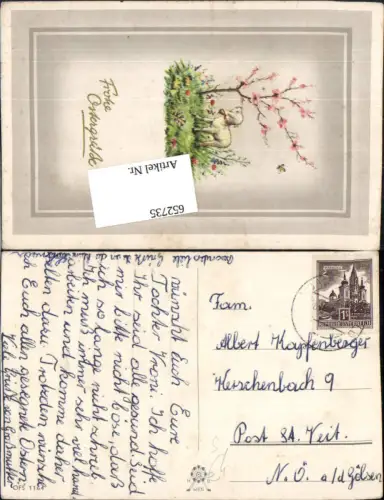 Frohe
Ostergrüße
Artikel Nr.
652735
wünscht Euch Eure
Tochter Vroni. Ich hoffe
Ihr seid alle gesund. Sind
mir bitte nicht böse, daß
ich so lange nicht schrieb.
Ich muß immer sehr viel
arbeiten und komme daher
selten dazu. Trotzdem wünsche
ich Euch allen gesegnete Ostern.
Viele Grüße
Fam.
Albert Kapfenberger
Herschenbach 9
Post St. Veit.
N. Ö. a/d Gölsen
REPUBLIK ÖSTERREICH